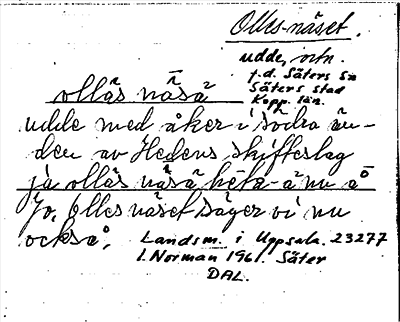 Olles-näset.
udde, ortn.
f.d. Säters sn
Säters stad
Kopp. län.
ollä̃s nä̃sä̀
udde med åker i södra än-
den av Hedens skifteslag
ja ollä̃s nä̃sä̀ heta- ä nu å
Jo, Olles näset säger vi nu
också,
Landsm. i Uppsala. 23277
I. Norman 1961. Säter
DAL.